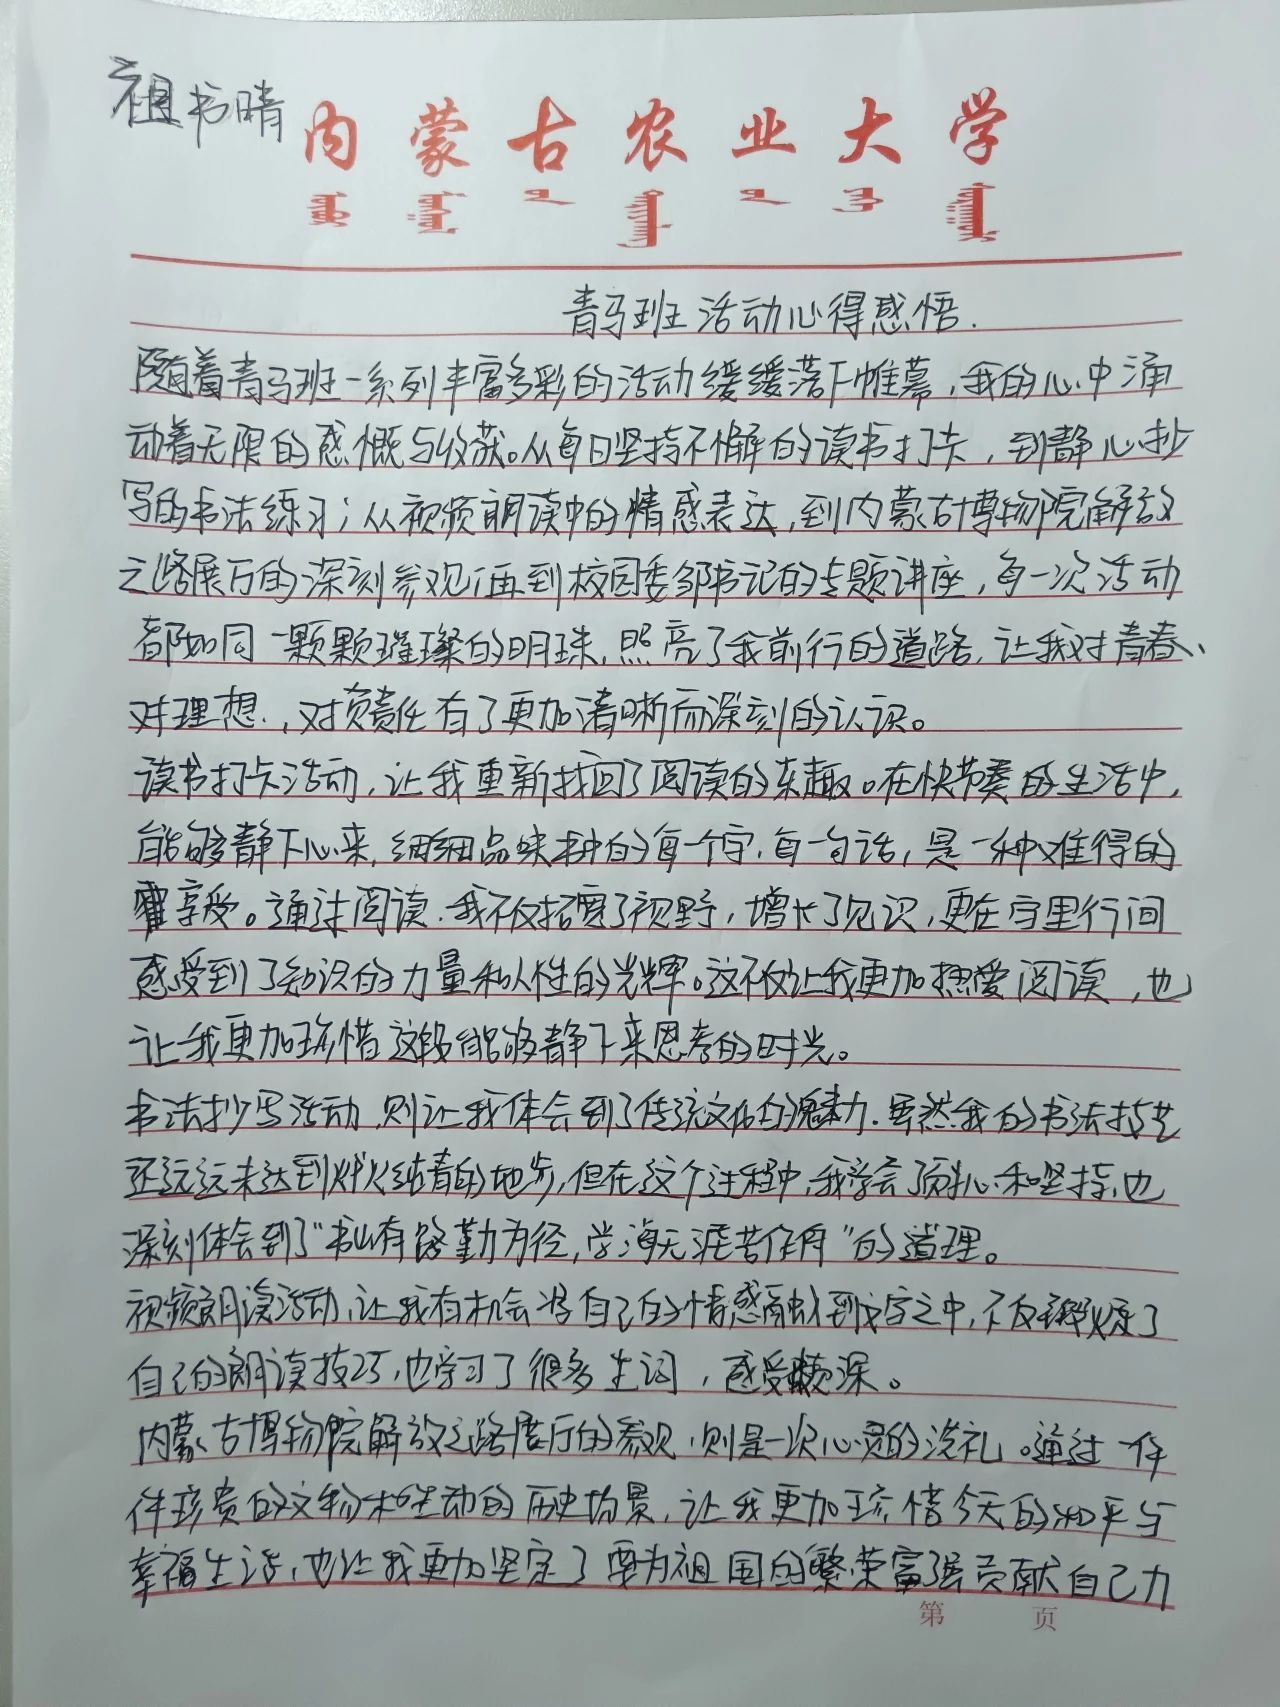 祖书晴
内蒙古农业大学
青马班活动心得感悟.
随着青马班一系列丰富多彩的活动缓缓落下帷幕,我的心中涌
动着无限的感慨与收获。从每日坚持不懈的读书打卡,到静心抄
写的书法练习;从视频朗读中的情感表达,到内蒙古博物院解放
之路展厅的深刻参观;再到校团委邹书记的专题讲座,每一次活动
都如同一颗颗璀璨的明珠,照亮了我前行的道路,让我对青春、
对理想.,对责任有了更加清晰而深刻的认识。
读书打卡活动,让我重新找回了阅读的乐趣。在快节奏的生活中,
能够静下心来,细细品味书中的每个字,每一句话,是一种难得的
享受。通过阅读.我不仅拓宽了视野,增长了见识,更在字里行间
感受到了知识的力量和人性的光辉。这不仅让我更加热爱阅读,也
让我更加珍惜这段能够静下来思考的时光。
书法抄写活动,则让我体会到了传统文化的魅力.虽然我的书法技艺
还远远未达到炉火纯青的地步,但在这个过程中,我学会了耐心和坚持,也
深刻体会到了"书山有路勤为径,学海无涯苦作舟"的道理。
视频朗读活动,让我有机会将自己的情感融入到文字之中,不仅锻炼了
自己的朗读技巧,也学习了很多生词,感受颇深。
内蒙古博物院解放之路展厅的参观,则是一次心灵的洗礼。通过一件
件珍贵的文物和生动的历史场景,让我更加珍惜今天的和平与
幸福生活,也让我更加坚定了要为祖国的繁荣富强贡献自己力
第 页